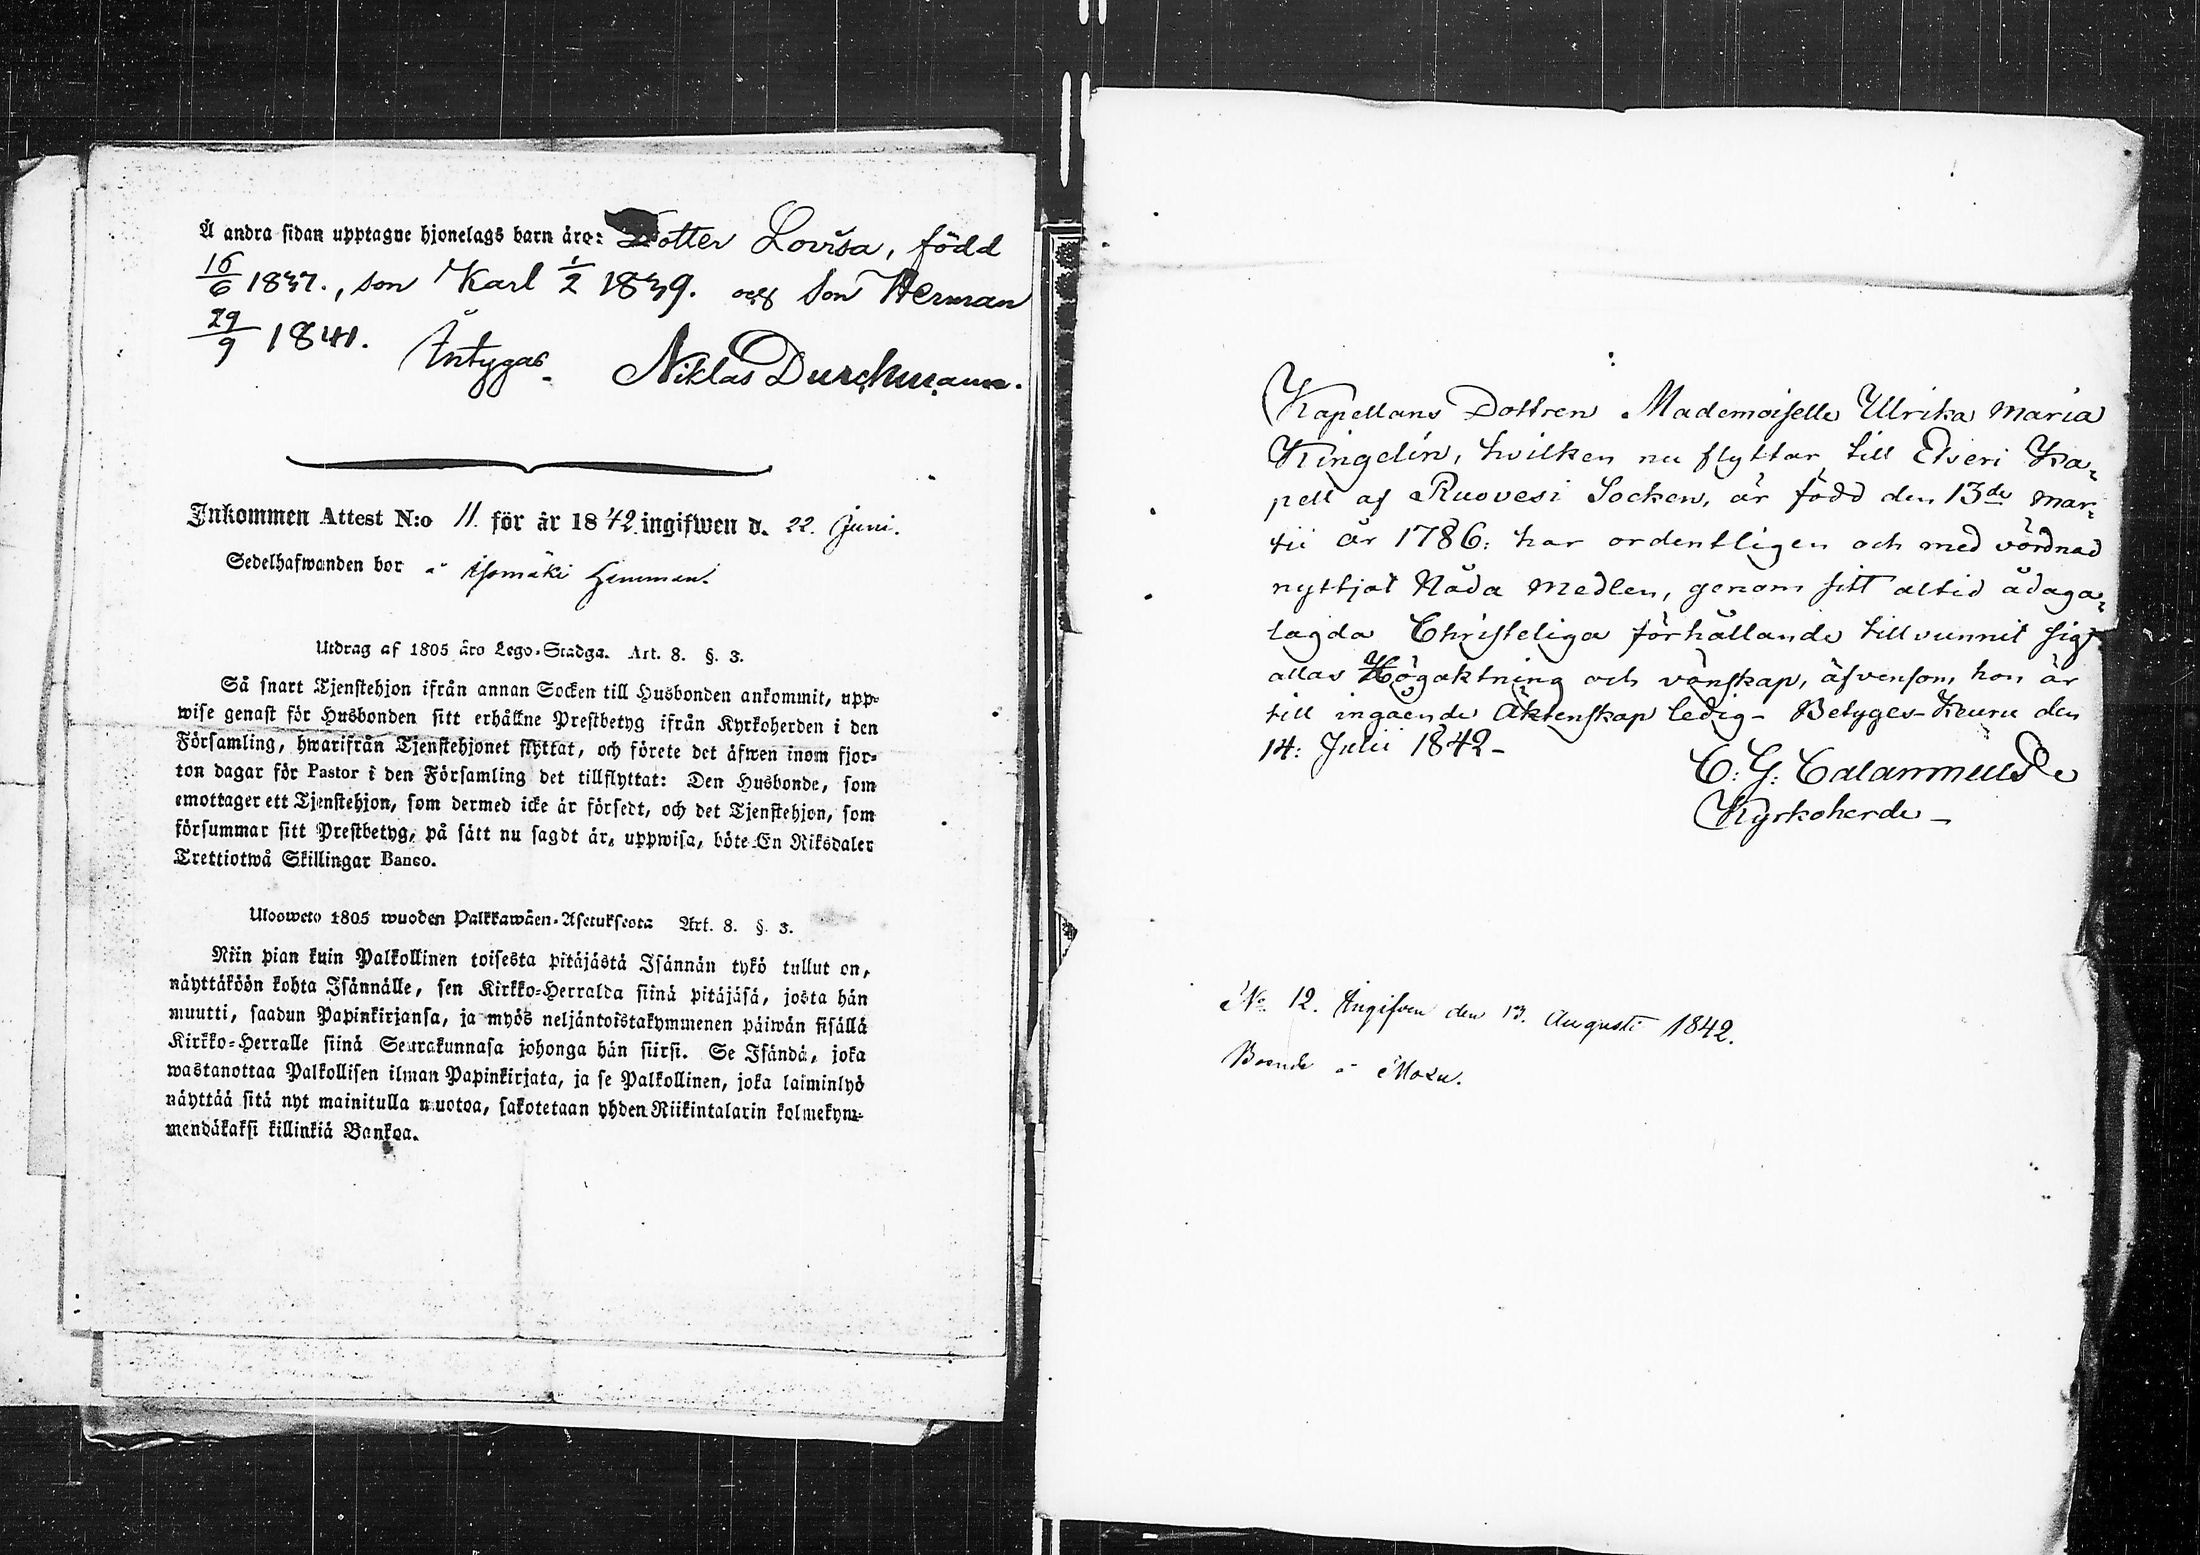 Å andra sidan upptagne hjonelags barn äro: Dotter Lovisa, född
16/6 1837., son Karl 1/2 1839. och Son Herman
29/9 1841. Intygas Niklas Durchman.
Inkommen Attest N:o 11. för år 1842. ingifwen d. 22. Juni.
Sedelhafwanden bor å Isomäki Hemman.
Utdrag af 1805 års Lego-Stadga. Art. 8. §. 3.
Så snart Tjenstehjon ifrån annan Socken till Husbonden ankommit, upp-
wise genast för Husbonden sitt erhållne Prestbetyg ifrån Kyrkoherden i den
Församling, hwarifrån Tjenstehjonet flyttat, och förete det äfwen inom fjor-
ton dagar för Pastor i den Församling det tillflyttat: Den Husbonde, som
emottager ett Tjenstehjon, som dermed icke är försedt, och det Tjenstehjon, som
försummar sitt Prestbetyg, på sätt nu sagdt är, uppwisa, böte En Riksdaler
Trettiotwå Skillingar Banco.
Ulosweto 1805 wuoden Palkkawäen-Asetuksesta Art. 8. §. 3.
Niin pian kuin Palkollinen toisesta pitäjästä Isännän tykö tullut on,
näyttäköön kohta Isännälle, sen Kirkko-Herralda siinä pitäjäsä, josta hän
muutti, saadun Papinkirjansa, ja myös neljäntoistakymmenen päiwän sisällä
Kirkko-Herralle siinä Seurakunnasa johonga hän siirsi. Se Isändä, joka
wastanottaa Palkollisen ilman Papinkirjata, ja se Palkollinen, joka laiminlyö
näyttää sitä nyt mainitulla muotoa, sakotetaan yhden Riikintalarin kolmekym-
mendäkaksi killinkiä Bankoa.
Kapellans Dottren Mademoiselle Ulrika Maria
Kingelin, hvilken nu flyttar till Etseri Ka-
pell af Ruovesi Socken, är född den 13de Mar-
tii år 1786: har ordentligen och med vördnad
nyttjat Nåda Medlen, genom sitt altid ådaga-
lagda Christeliga förhållande tillvunnit sig
allas Högaktning och vänskap, äfvensom hon är
till ingående Äktenskap ledig - Betygas - Keuru den
14: Julii 1842 -
C: G: Calamnius
Kyrkoherde -
No 12. Ingifven den 13. Augusti 1842.
Boende å